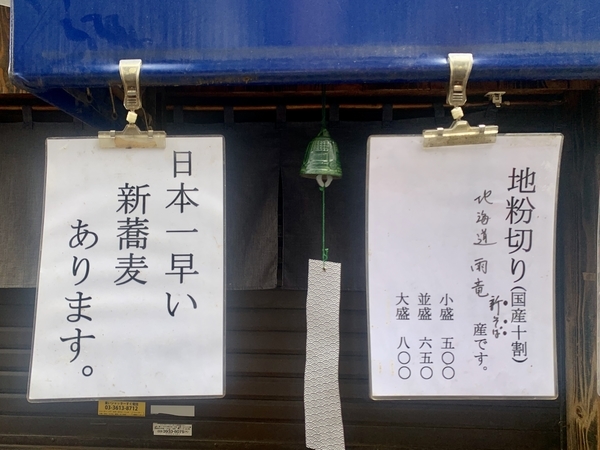 日本一早い
新蕎麦
あります。
地粉切り(国産十割)
北海道 雨竜 産です。
新そば
小盛 五〇〇
並盛 六五〇
大盛 八〇〇